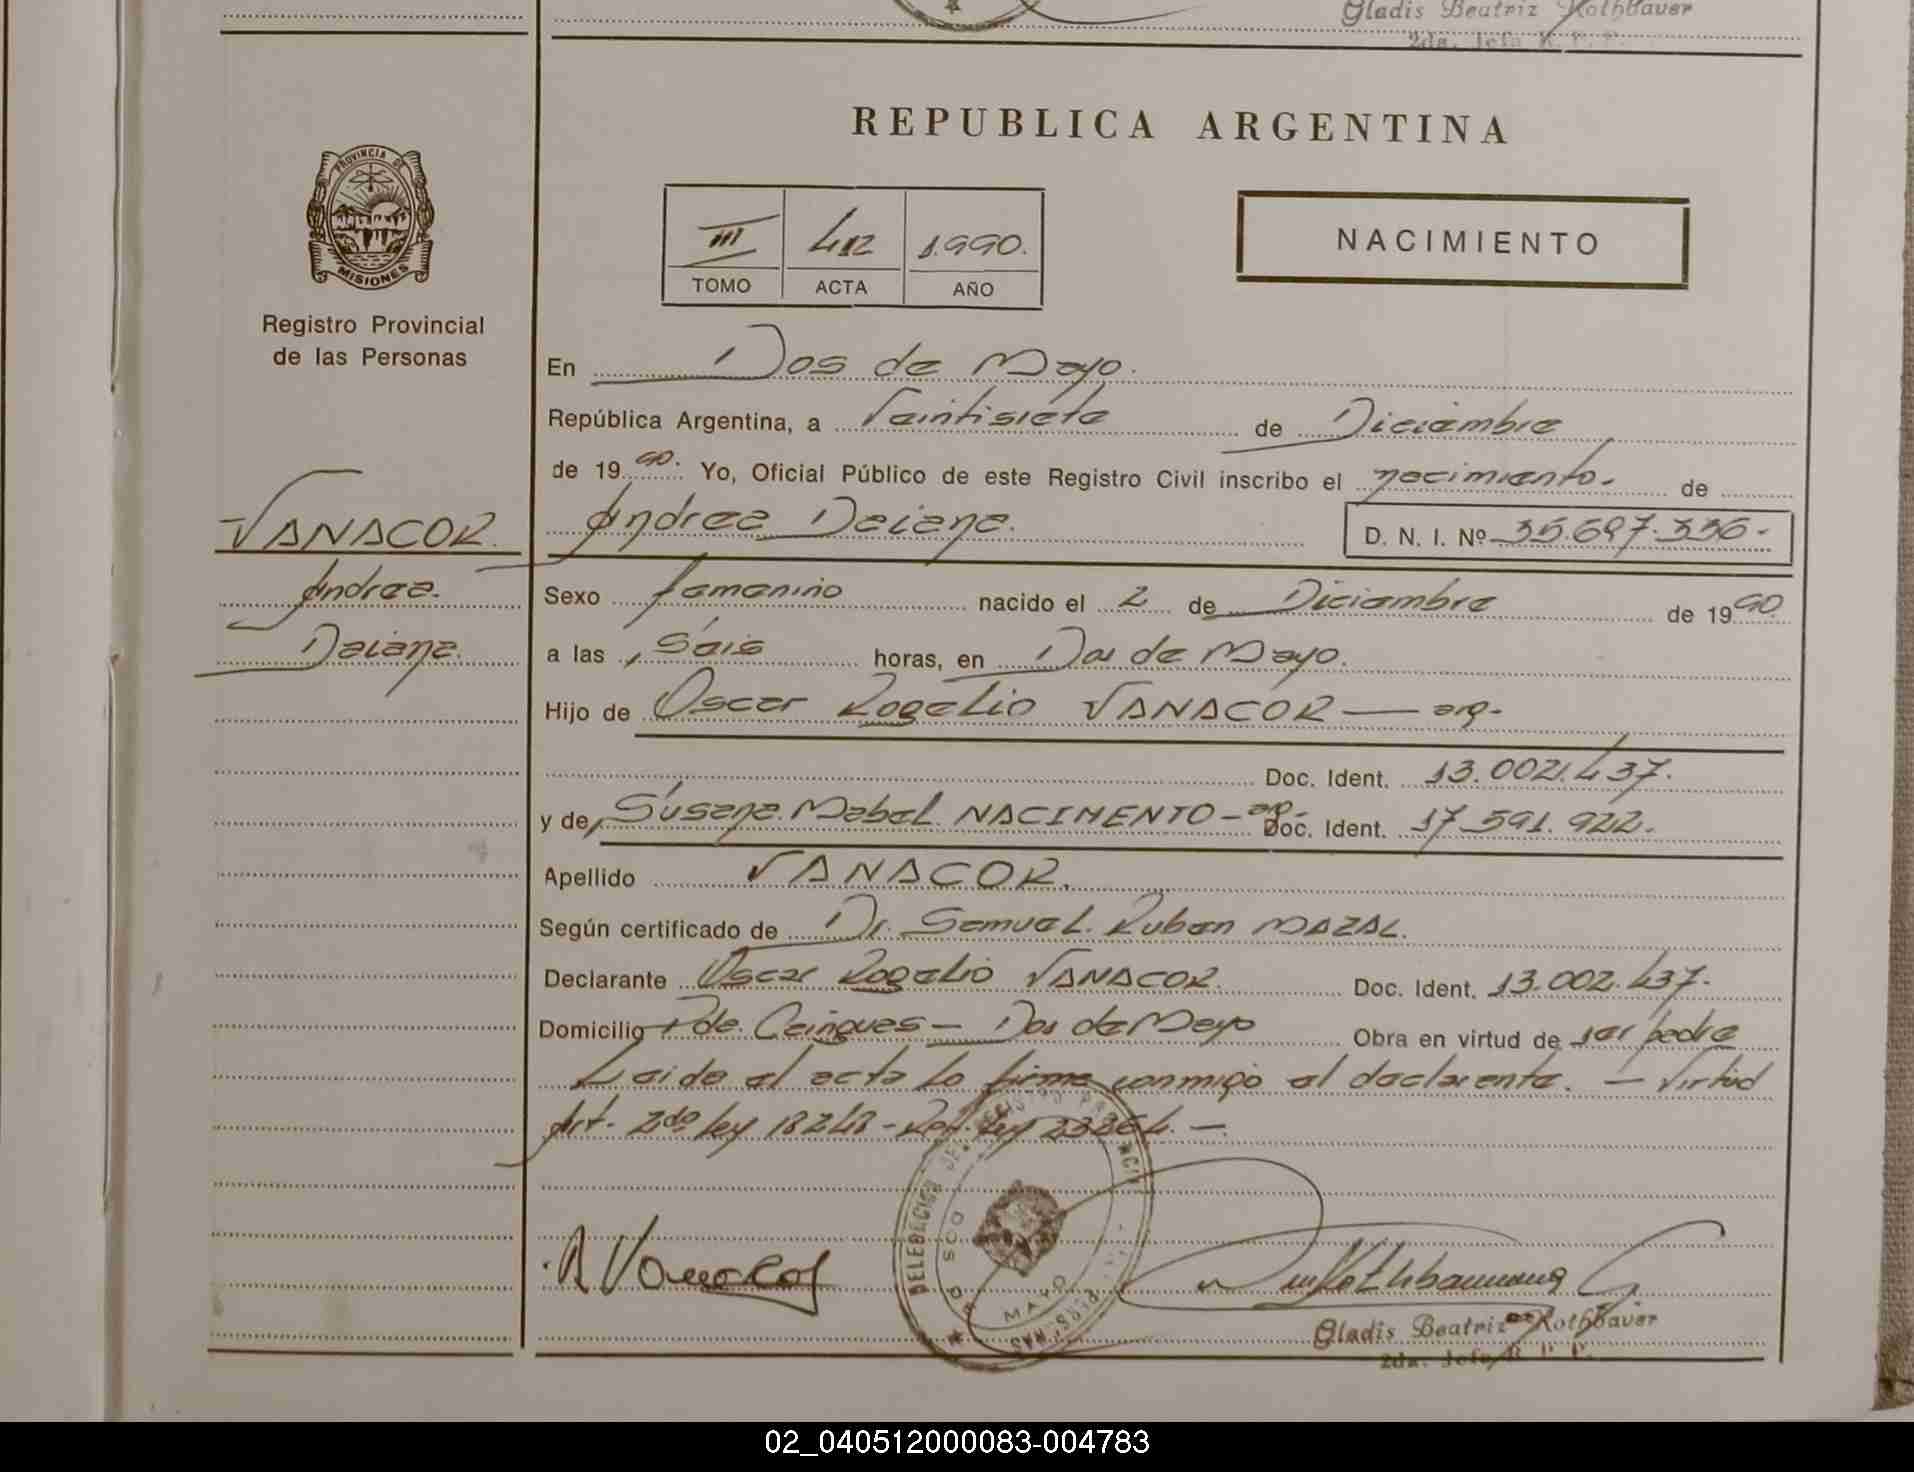 Gladis Beatriz Rothbauer
2da. Jefa R. P. P.
REPUBLICA ARGENTINA
PROVINCIA DE
MISIONES
Registro Provincial
de las Personas
III 412 1.990.
TOMO ACTA AÑO
NACIMIENTO
En Dos de Mayo.
República Argentina, a Veintisiete de Diciembre
de 1990. Yo, Oficial Público de este Registro Civil inscribo el nacimiento. de
VANACOR.
Andrea Daiana. D. N. I. Nº 35.697.336.-
Andrea.
Sexo femenino nacido el 2 de Diciembre de 1990
Daiana.
a las Seis horas, en Dos de Mayo.
Hijo de Oscar Rogelio VANACOR — arg-
Doc. Ident. 13.002.437.
y de Susana Mabel NACIMENTO - arg- Doc. Ident. 17.591.922.
Apellido VANACOR.
Según certificado de Dr. Samuel Ruben MAZAL.
Declarante Oscar Rogelio VANACOR. Doc. Ident. 13.002.437.
Domicilio Pde. Caingues - Dos de Mayo Obra en virtud de ser padre
Leida el acta lo firma conmigo el declarante. - Virtud
Art. 2do ley 18248 - Ley 23264. -
DOS DE MAYO
Gladis Beatriz Rothbauer
2da. Jefa R. P. P.
02_040512000083-004783